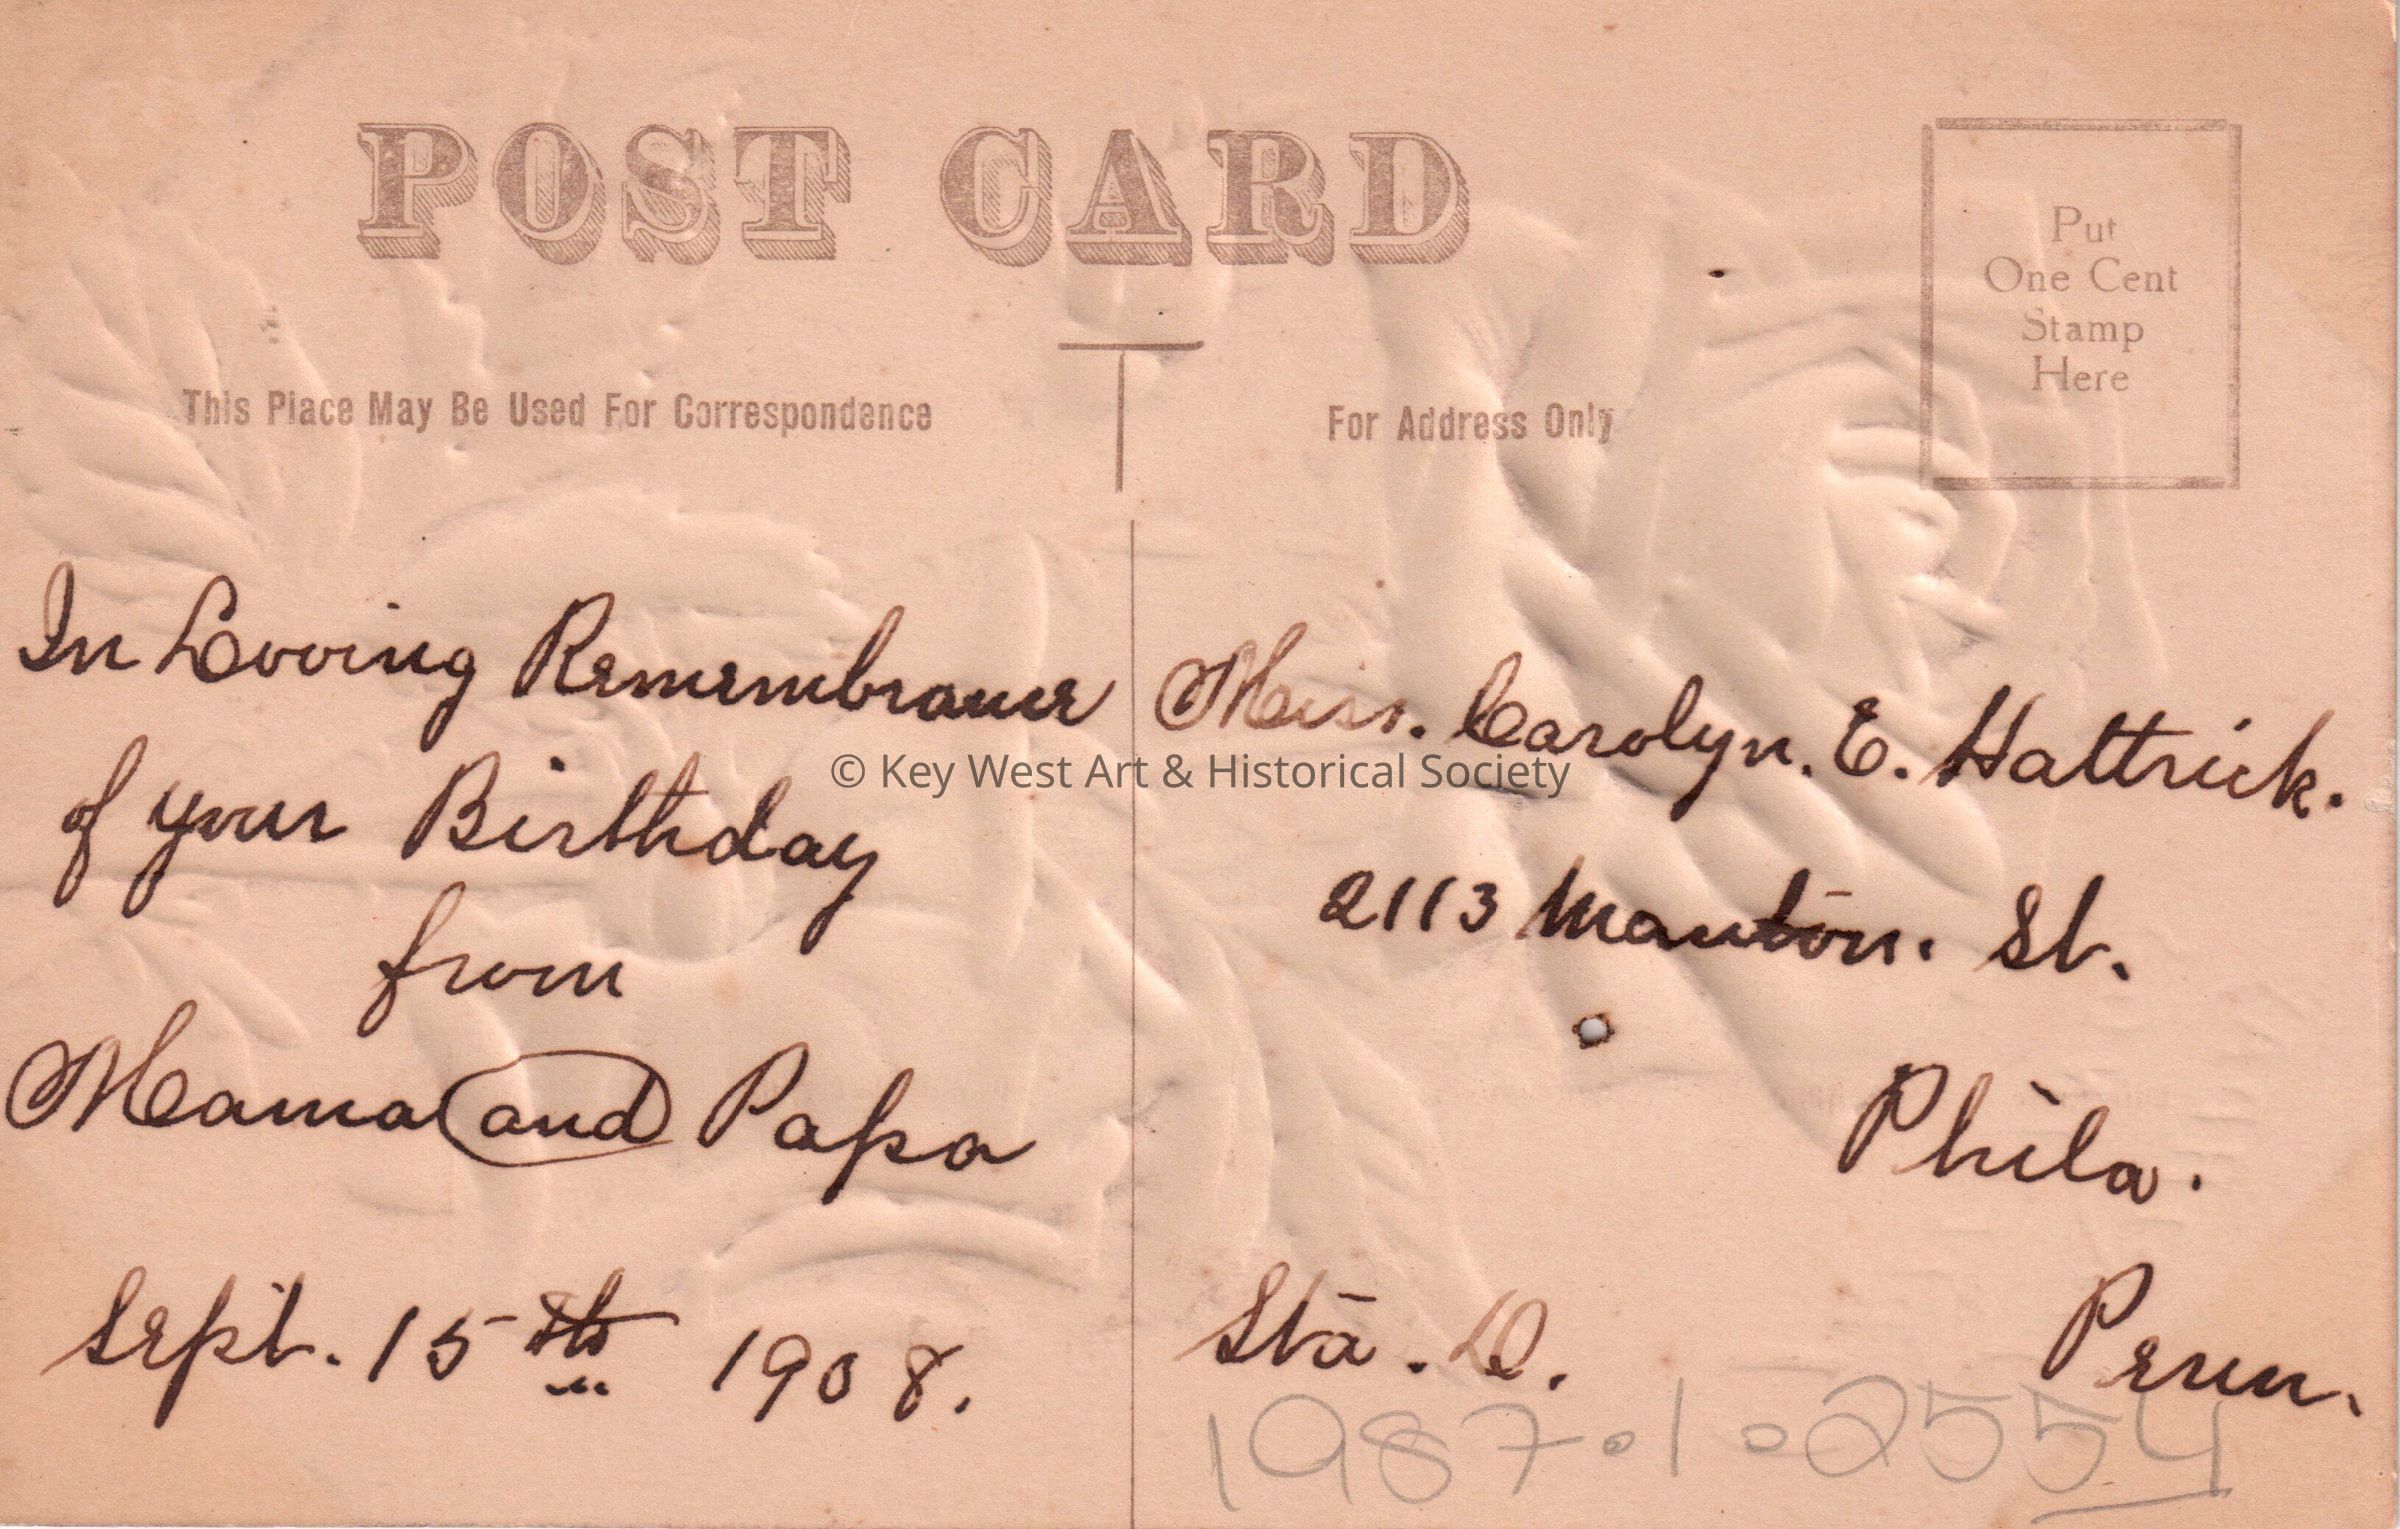 POST CARD
Put
One Cent
Stamp
Here
This Place May Be Used For Correspondence
For Address Only
In Loving Remembrance
of your Birthday
from
Mama and Papa
Sept. 15th 1908.
Miss. Carolyn. E. Hattrick.
2113 Manton. St.
Phila.
Sta. D.
Penn.
1987.1.2554
© Key West Art & Historical Society